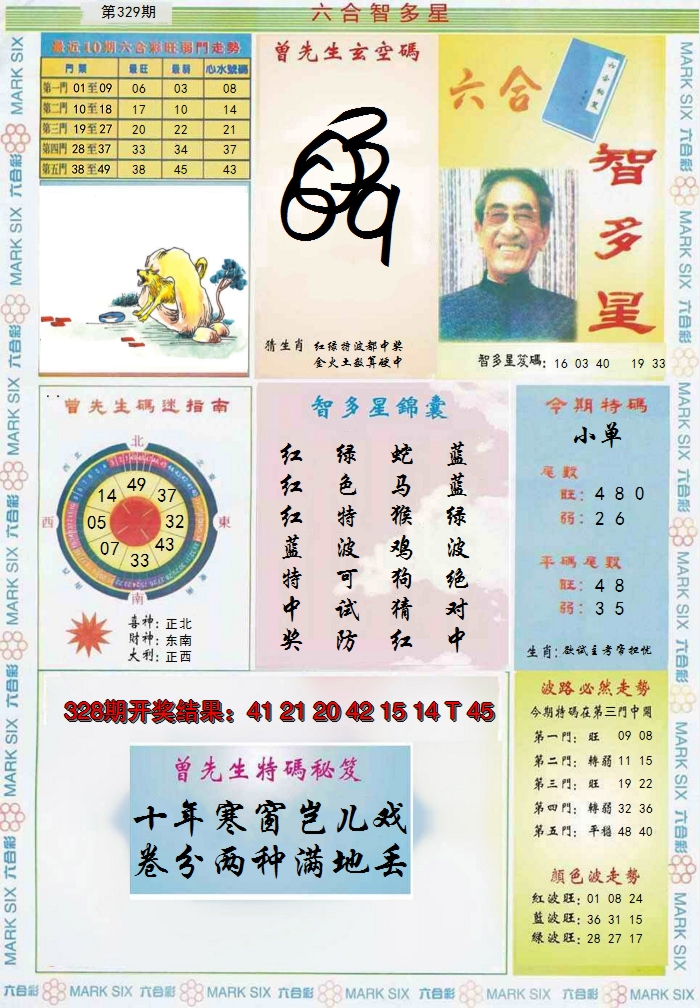 第329期
六合智多星
最近10期六合彩旺弱門走勢
門類 最旺 最弱 心水號碼
第一門 01至09 06 03 08
第二門 10至18 17 10 14
第三門 19至27 20 22 21
第四門 28至37 33 34 37
第五門 38至49 38 45 43
曾先生玄空碼
猜生肖 红绿特波都中奖
金火土数算破中
六合
智多星
智多星笈碼: 16 03 40 19 33
曾先生碼迷指南
北
西
東
南
49
14
37
05
32
07
43
33
喜神: 正北
财神: 东南
大利: 正西
智多星錦囊
红 绿 蛇 蓝
红 色 马 蓝
红 特 猴 绿
蓝 波 鸡 波
特 可 狗 绝
中 试 猜 对
奖 防 红 中
今期特碼
小单
尾數
旺: 4 8 0
弱: 2 6
平碼尾數
旺: 4 8
弱: 3 5
生肖: 欲试主考常担忧
328期开奖结果: 41 21 20 42 15 14 T 45
曾先生特碼秘笈
十年寒窗岂儿戏
卷分两种满地丢
波路必然走勢
今期特碼在第三門中開
第一門: 旺 09 08
第二門: 轉弱 11 15
第三門: 旺 19 22
第四門: 轉弱 32 36
第五門: 平穩 48 40
顏色波走勢
紅波旺: 01 08 24
藍波旺: 36 31 15
綠波旺: 28 27 17
六合彩 MARK SIX 六合彩 MARK SIX 六合彩 MARK SIX 六合彩 MARK SIX 六合彩